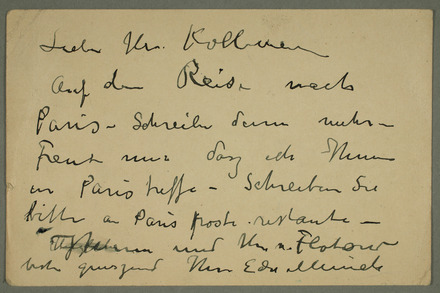 Lieber Hr. Kollmann
Auf der Reise nach
Paris – Schreibe dann mehr –
Freut mich daß ich Ihnen
in Paris treffe – Schreiben Sie
bitte an Paris poste restante –
und Hr v. Flotow
beste grüszend Ihr Edv. Munch